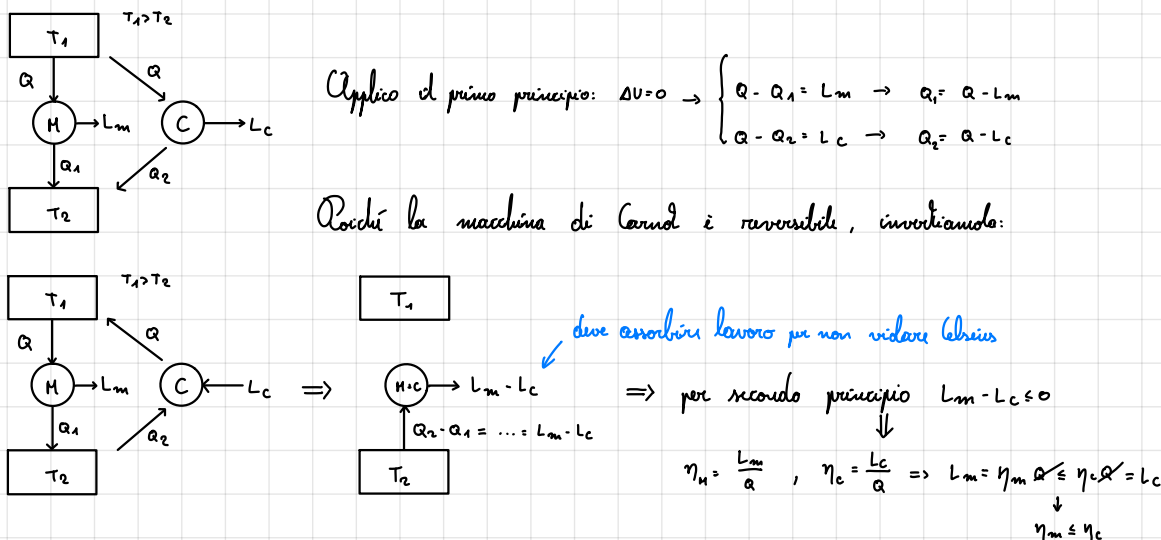 T₁>T₂
T₁
Q
Q
M
Lm
C
Lc
Q₁
Q₂
T₂
Applico il primo principio: ΔU=0 → { Q - Q₁ = Lm → Q₁ = Q - Lm
Q - Q₂ = Lc → Q₂ = Q - Lc
Poiché la macchina di Carnot è reversibile, invertiamola:
T₁>T₂
T₁
Q
Q
M
Lm
C
Lc
Q₁
Q₂
T₂
⇒
T₁
deve assorbire lavoro per non violare Celsius
M+C → Lm - Lc
Q₂ - Q₁ = ... = Lm - Lc
T₂
⇒ per secondo principio Lm - Lc ≤ 0
⇓
ηM = Lm/Q , ηc = Lc/Q ⇒ Lm = ηm Q ≤ ηc Q = Lc
↓
ηm ≤ ηc